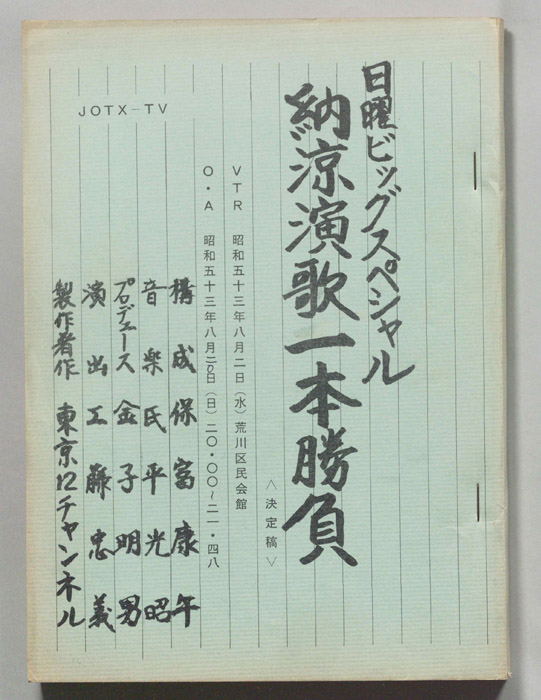 日曜ビッグスペシャル
納涼演歌一本勝負
〈決定稿〉
VTR 昭和五十三年八月二日(水)荒川区民会館
O・A 昭和五十三年八月二0日(日)二〇・〇〇~二一・四八
JOTX-TV
構成 保富康午
音楽 氏平光昭
プロデュース 金子明男
演出 工藤忠義
製作著作 東京12チャンネル